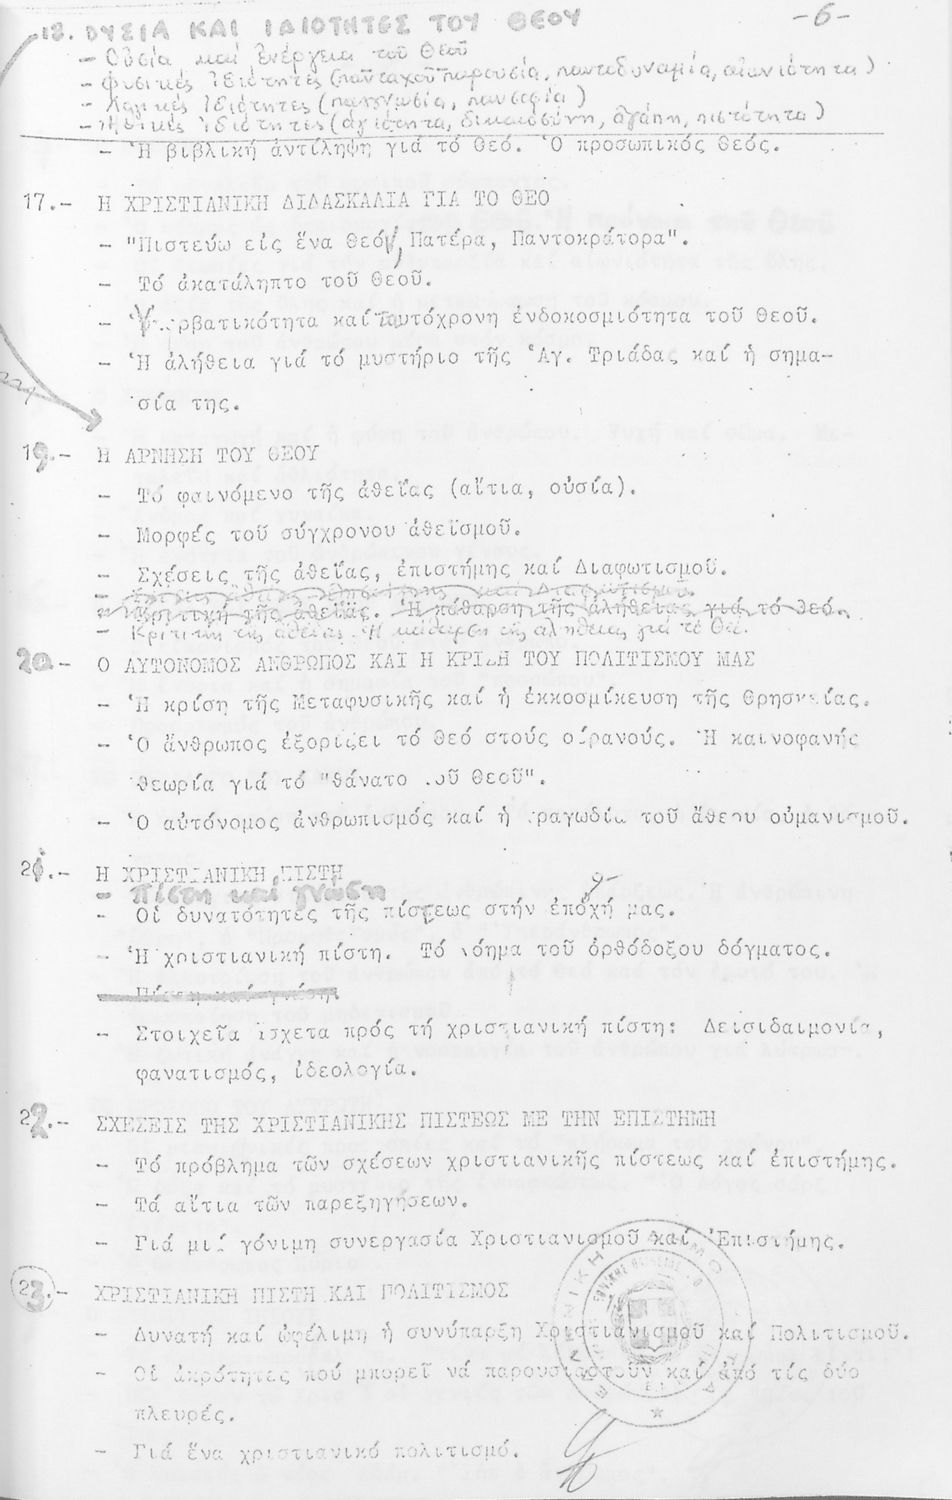 -6-
18. ΟΥΣΙΑ ΚΑΙ ΙΔΙΟΤΗΤΕΣ ΤΟΥ ΘΕΟΥ
- Οὐσία καί ἐνέργεια τοῦ Θεοῦ
- Φυσικές Ἰδιότητες (πανταχοῦ παρουσία, παντοδυναμία, αἰωνιότητα)
- Λογικές Ἰδιότητες (παγγνωσία, πανσοφία)
- Ἠθικές Ἰδιότητες (ἁγιότητα, δικαιοσύνη, ἀγάπη, πιστότητα)
- Ἡ βιβλική ἀντίληψη γιά τό Θεό. Ὁ προσωπικός Θεός.
17.- Η ΧΡΙΣΤΙΑΝΙΚΗ ΔΙΔΑΣΚΑΛΙΑ ΓΙΑ ΤΟ ΘΕΟ
- "Πιστεύω εἰς ἕνα Θεόν, Πατέρα, Παντοκράτορα".
- Τό ἀκατάληπτο τοῦ Θεοῦ.
- Ὑπερβατικότητα καί ταυτόχρονη ἐνδοκοσμιότητα τοῦ Θεοῦ.
- Ἡ ἀλήθεια γιά τό μυστήριο τῆς Ἁγ. Τριάδας καί ἡ σημα-
σία της.
19.- Η ΑΡΝΗΣΗ ΤΟΥ ΘΕΟΥ
- Τό φαινόμενο τῆς ἀθεΐας (αἴτια, οὐσία).
- Μορφές τοῦ σύγχρονου ἀθεϊσμοῦ.
- Σχέσεις τῆς ἀθεΐας, ἐπιστήμης καί Διαφωτισμοῦ.
- Κριτική τῆς ἀθεΐας. Ἡ κάθαρση τῆς ἀλήθειας γιά τό Θεό.
- Κριτική της αθεΐας. Η κάθαρση της αλήθειας για το Θεό.
20.- Ο ΑΥΤΟΝΟΜΟΣ ΑΝΘΡΩΠΟΣ ΚΑΙ Η ΚΡΙΣΗ ΤΟΥ ΠΟΛΙΤΙΣΜΟΥ ΜΑΣ
- Ἡ κρίση τῆς Μεταφυσικῆς καί ἡ ἐκκοσμίκευση τῆς Θρησκείας.
- Ὁ ἄνθρωπος ἐξορίζει τό Θεό στούς οὐρανούς. Ἡ καινοφανής
θεωρία γιά τό "θάνατο τοῦ Θεοῦ".
- Ὁ αὐτόνομος ἀνθρωπισμός καί ἡ τραγωδία τοῦ ἄθεου οὑμανισμοῦ.
21.- Η ΧΡΙΣΤΙΑΝΙΚΗ ΠΙΣΤΗ
- Πίστη καί γνώση
- Οἱ δυνατότητες τῆς πίστεως στήν ἐποχή μας.
- Ἡ χριστιανική πίστη. Τό νόημα τοῦ ὀρθόδοξου δόγματος.
Πίστη καί γνώση
- Στοιχεῖα ἄσχετα πρός τή χριστιανική πίστη: Δεισιδαιμονία,
φανατισμός, ἰδεολογία.
22.- ΣΧΕΣΕΙΣ ΤΗΣ ΧΡΙΣΤΙΑΝΙΚΗΣ ΠΙΣΤΕΩΣ ΜΕ ΤΗΝ ΕΠΙΣΤΗΜΗ
- Τό πρόβλημα τῶν σχέσεων χριστιανικῆς πίστεως καί ἐπιστήμης.
- Τά αἴτια τῶν παρεξηγήσεων.
- Γιά μιά γόνιμη συνεργασία Χριστιανισμοῦ καί Ἐπιστήμης.
23.- ΧΡΙΣΤΙΑΝΙΚΗ ΠΙΣΤΗ ΚΑΙ ΠΟΛΙΤΙΣΜΟΣ
- Δυνατή καί ὠφέλιμη ἡ συνύπαρξη Χριστιανισμοῦ καί Πολιτισμοῦ.
- Οἱ ἀκρότητες πού μπορεῖ νά παρουσιαστοῦν καί ἀπό τίς δύο
πλευρές.
- Γιά ἕνα χριστιανικό πολιτισμό.